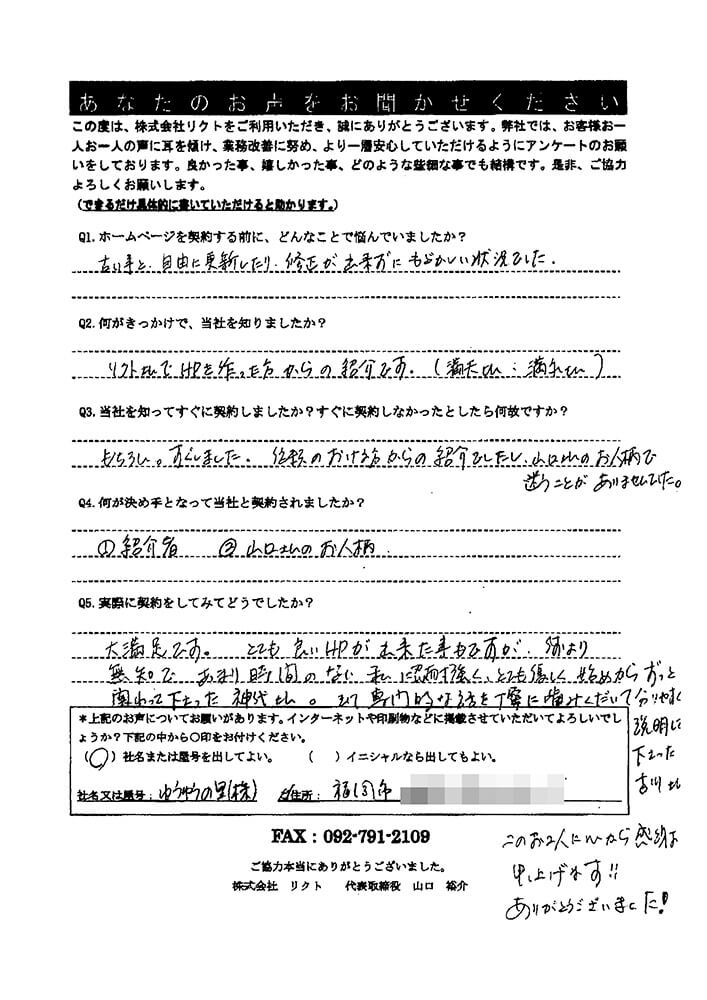 あなたのお声をお聞かせください
この度は、株式会社リクトをご利用いただき、誠にありがとうございます。弊社では、お客様お一
人お一人の声に耳を傾け、業務改善に努め、より一層安心していただけるようにアンケートのお願
いをしております。良かった事、嬉しかった事、どのような些細な事でも結構です。是非、ご協力
よろしくお願いします。
（できるだけ具体的に書いていただけると助かります。）
Q1. ホームページを契約する前に、どんなことで悩んでいましたか？
古い事と、自由に更新したり、修正が出来ずに もどかしい状況でした.
Q2. 何がきっかけで、当社を知りましたか？
リクトさんで HPを作った方 からの 紹介です。
Q3. 当社を知ってすぐに契約しましたか？すぐに契約しなかったとしたら何故ですか？
もちろん。すぐしました. 信頼のおける方からの紹介でしたし、山口さんのお人柄で
迷うことが ありませんでした。
Q4. 何が決め手となって当社と契約されましたか？
①紹介者 ②山口さんのお人柄.
Q5. 実際に契約をしてみてどうでしたか？
大満足です。 とても良いHPが出来た事もですが、何より
無知で あまり時間のない 私に忍耐強く、とても優しく 始めからずっと
関わって下さった 神代さん。そして専門的な話を丁寧に噛みくだいて分りやすく
説明して
下さった
古川さん
このお2人に心から感謝
申し上げます!!
ありがとうございました!
＊上記のお声についてお願いがあります。インターネットや印刷物などに掲載させていただいてよろしいでし
ょうか？下記の中から〇印をお付けください。
（〇）社名または屋号を出してよい。 （ ）イニシャルなら出してもよい。
社名又は屋号： ゆうゆうの里(株) ご住所： 福岡市
FAX：092-791-2109
ご協力本当にありがとうございました。
株式会社 リクト 代表取締役 山口 裕介